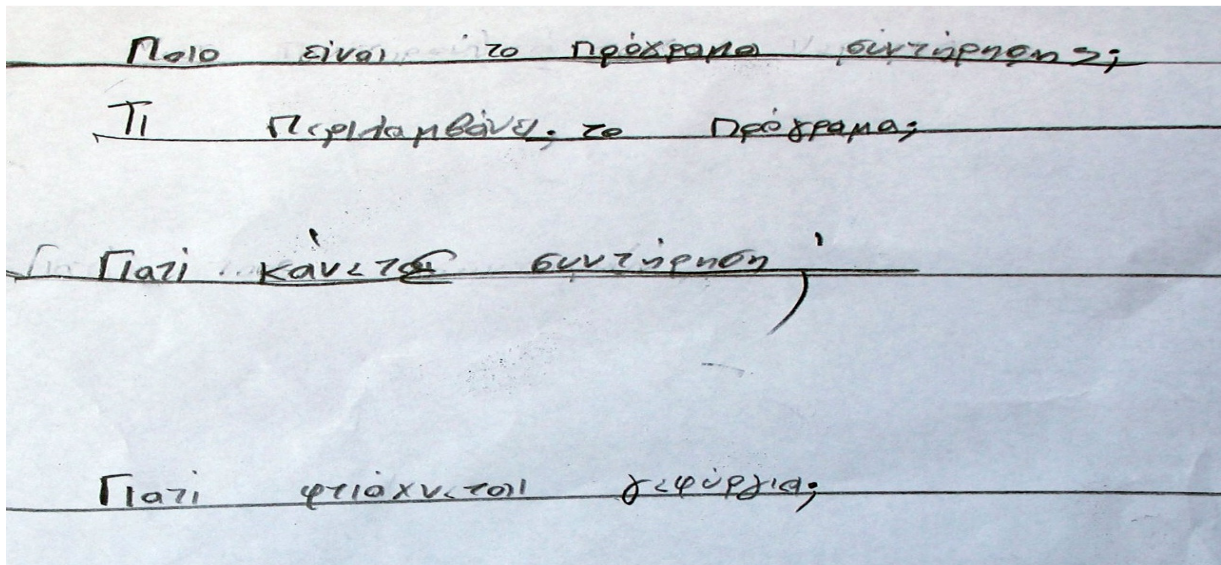 Ποιο είναι το πρόγραμα συντήρησης;
Τι Περιλαμβάνει το πρόγραμα;
Γιατί κάνετε συντήρηση;
Γιατί φτιάχνεται γεφύργια;